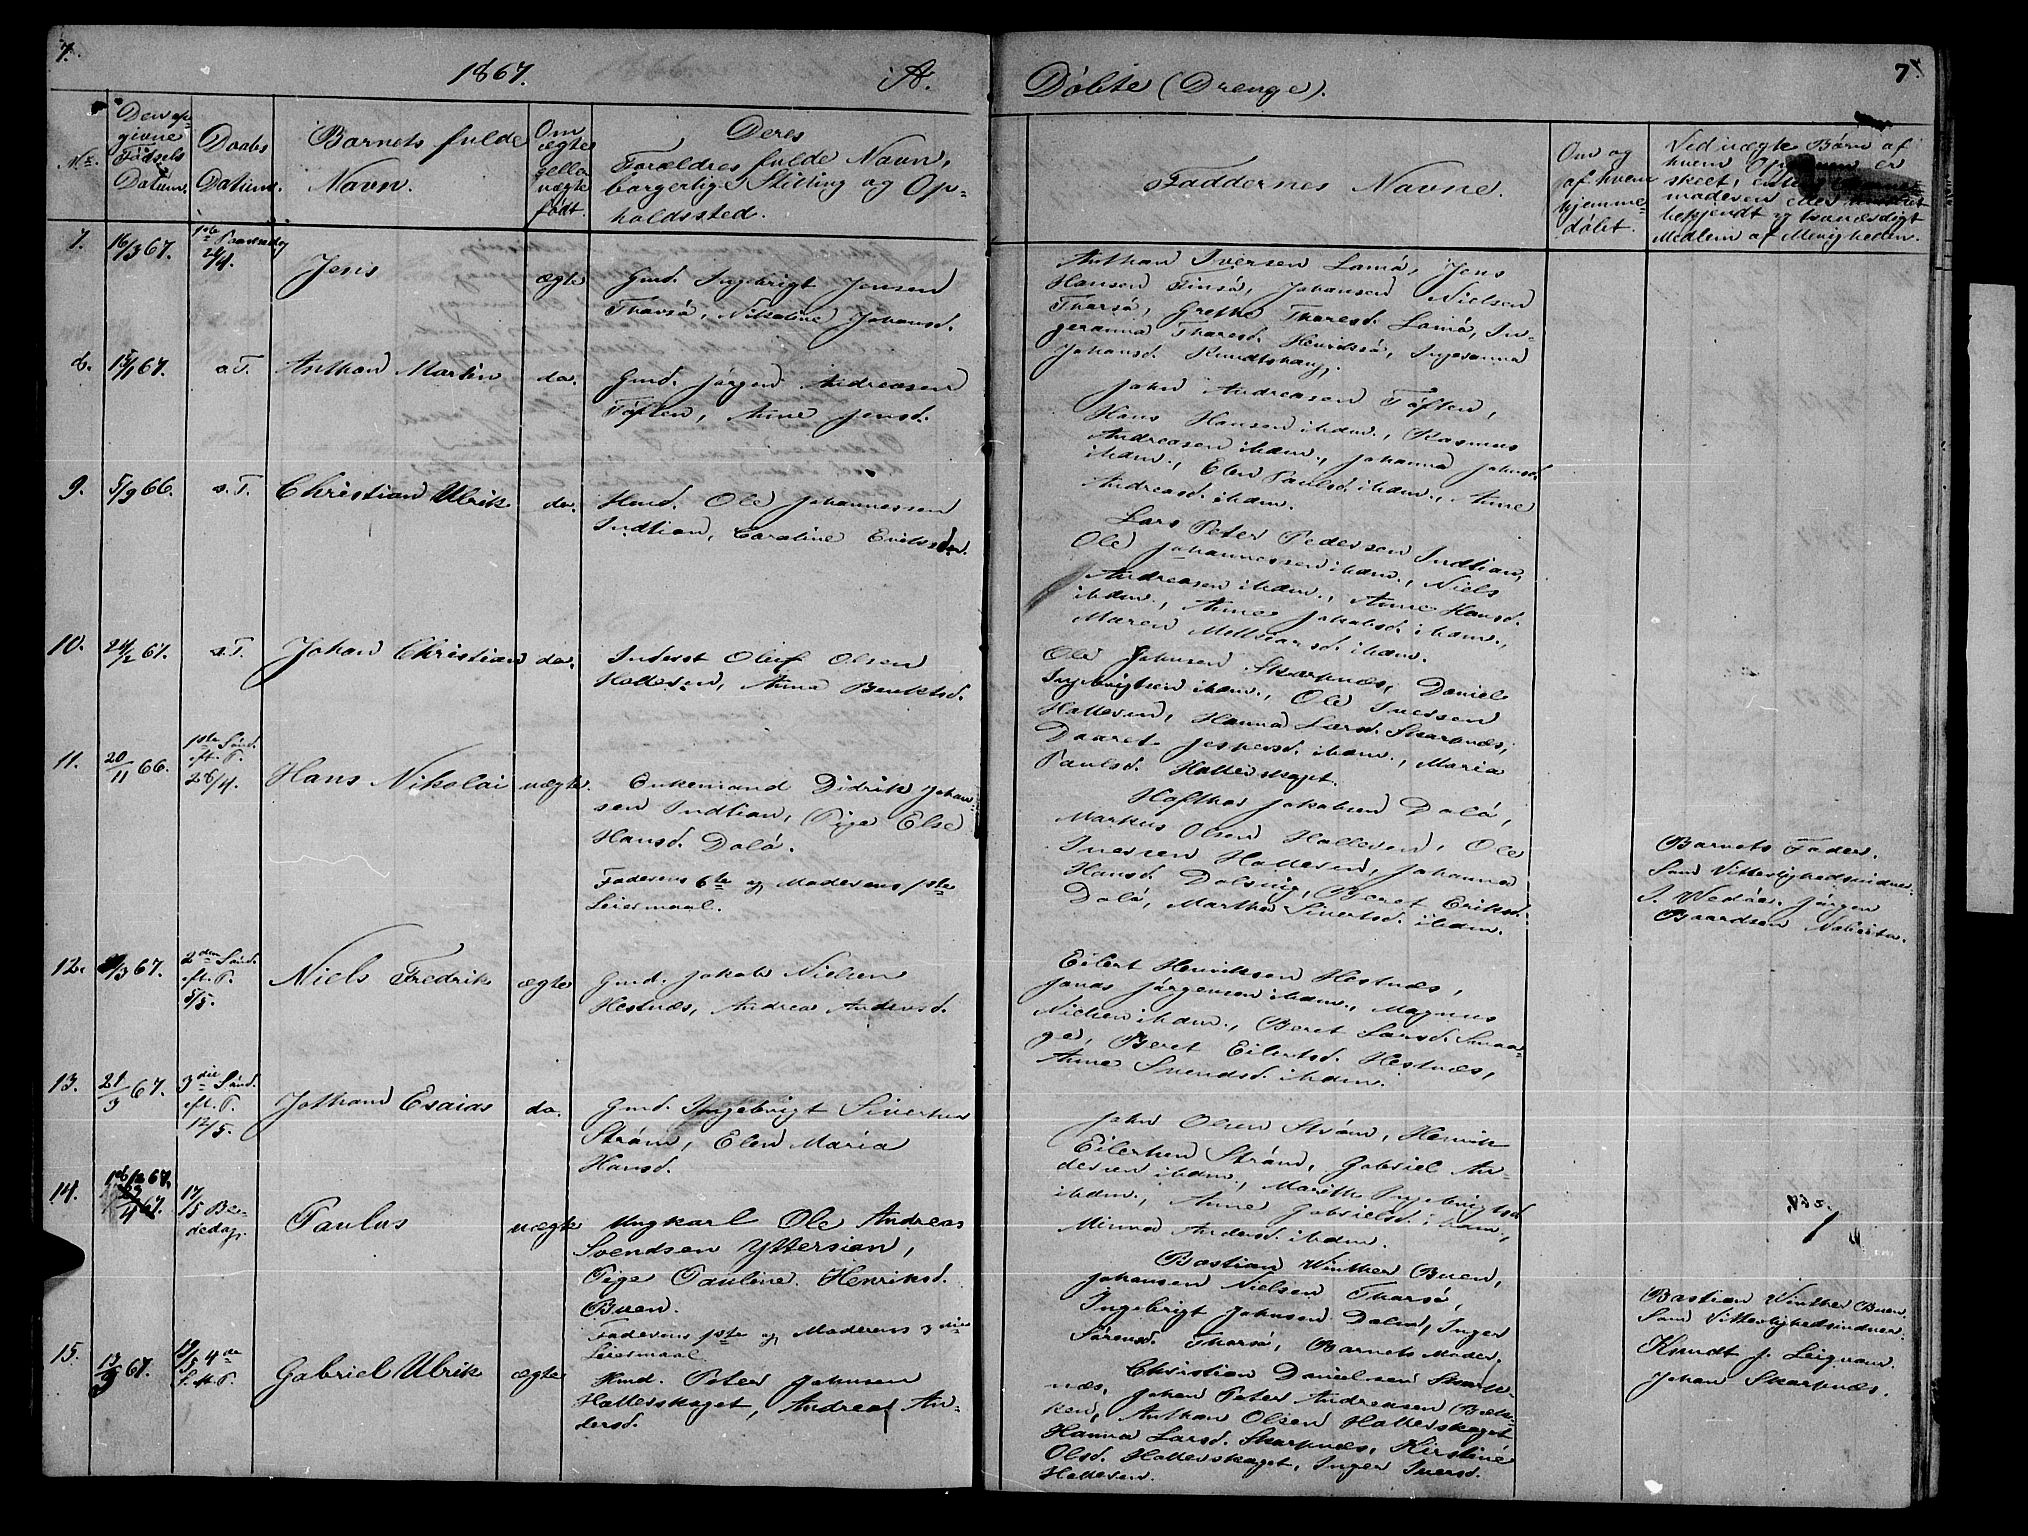 7.
1867.
A.
Døbte (Drenge).
7.
No.
Den op-
givne
Fødsels
Datum.
Daabs
Datum.
Barnets fulde
Navn.
Om
ægte
eller
uægte
født.
Deres
Forældres fulde Navn,
borgerlige Stilling og Op-
holdssted.
Faddernes Navne.
Om og
af hvem
hjemme-
døbt.
Ved uægte Børn af
hvem
er
skeet, enten
moderen eller
bekjendt og troværdigt
Medlem af Menigheden.
7.
16/3 67.
1ste Paaskedag
21/4.
Jens
ægte
Gmd. Ingebrigt Jensen
Tharsø, Nikoline Johansd.
Anthon Iversen Lamø, Jens
Hansen Finsø, Johansen Nielsen
Tharsø, Grethe Tharesd. Lamø, In-
geranna Tharesd. Henrdssø, Ingeranna
Johansd. Knudtshaug,
8.
15/1 67.
s. T.
Anthon Martin
do.
Gmd. Jørgen Andreasen
Tøften, Anne Jensd.
John Andreasen Tøften,
Hans Hansen ibdm., Rasmus
Andreasen ibdm., Johanna Johnsd.
ibdm., Elen Paulsd. ibdm., Anne
Andreasd. ibdm.
9.
5/9 66.
s. T.
Christian Ulrik
do.
Hmd. Ole Johannessen
Indtian, Caroline Eriksdr.
Lars Peter Pedersen Indtian,
Ole Johannessen ibdm., Niels
Andreasen ibdm., Anne Hansd.
ibdm., Anne Jakobsd. ibdm.,
Maren Mellisarsd. ibdm.
10.
24/2 67.
s. T.
Johan Christian
do.
Inderst Oluf Olsen
Hallesen, Anna Beritsd.
Ole Johnsen Skarpnæs, Daniel
Ingebrigtsen ibdm., Ole Iversen
Hallesen, Hanna Larsd. Skarpnæs,
Daaret Jespersd. ibdm., Maria
Paulsd. Hallerskaget.
11.
20/11 66.
1ste Sønd.
eft. P.
28/4.
Hans Nikolai
uægte.
Enkemand Didrik Johan-
sen Indtian, Pige Else
Hansd. Dolø.
Faderens 6te og Moderens 1ste
Leiermaal.
Hafthor Jakobsen Dolø,
Markus Olsen Hallesen, Ole
Iversen Hallesen, Johanna
Hansd. Dolsvig, Beret Eriksd.
Dolø, Martha Sivertsd. ibdm.
Barnets Fader.
Som Vitterlighedsvidner
J. Wedøe. Jørgen
Baardsen
12.
/3 67.
2den Sønd.
eft. P.
5/5.
Niels Fredrik
ægte
Gmd. Jakob Nielsen
Hestnæs, Andrea Andersd.
Eilert Henriksen Hestnæs,
Jonas Jørgensen ibdm., Magnus
Nielsen ibdm., Beret Larsd. Smaa-
ge, Beret Eilertsd. Hestnæs,
Anne Svendsd. ibdm.
13.
21/3 67.
3die Sønd.
eft. P.
12/5.
Johan Esaias
do.
Gmd. Ingebrigt Sivertsen
Strøm, Elen Maria
Hansd.
John Olsen Strøm, Henrik
Eilertsen Strøm, Gabriel An-
dersen ibdm., Marith Ingebrigtsd.
ibdm., Anne Gabrielsd. ibdm,
Minna Andersd. ibdm.
14.
67.
17/5 Be-
dedag.
Paulus
uægte
Ungkarl Ole Andreas
Svendsen Yttersian,
Pige Pauline Henriksd.
Buen.
Faderens 1ste og Moderens 3die
Leiermaal.
Bastian Winther Buen,
Johansen Nielsen Tharsø,
Ingebrigt Johnsen Dolsø, Inger
Sørensd. Tharsø, Barnets Moder.
Bastian Winther Buen
Som Vitterlighedsvidner.
Knudt J. Leignam.
Johan Skarpnæs.
15.
13/3 67.
19/5 4de
S. e. P.
Gabriel Ulrik
ægte
Hmd. Peter Johnsen
Hallerskaget, Andrea An-
dersd.
Christian Danielsen Skarp-
næs, Johan Peter Andreasen Bæk-
ken, Anthon Olsen Hallerskaget
Hanna Larsd. Skarpnæs, Kirstine
Olsd. Hallerskaget, Inger Iversd.
Hallesen.